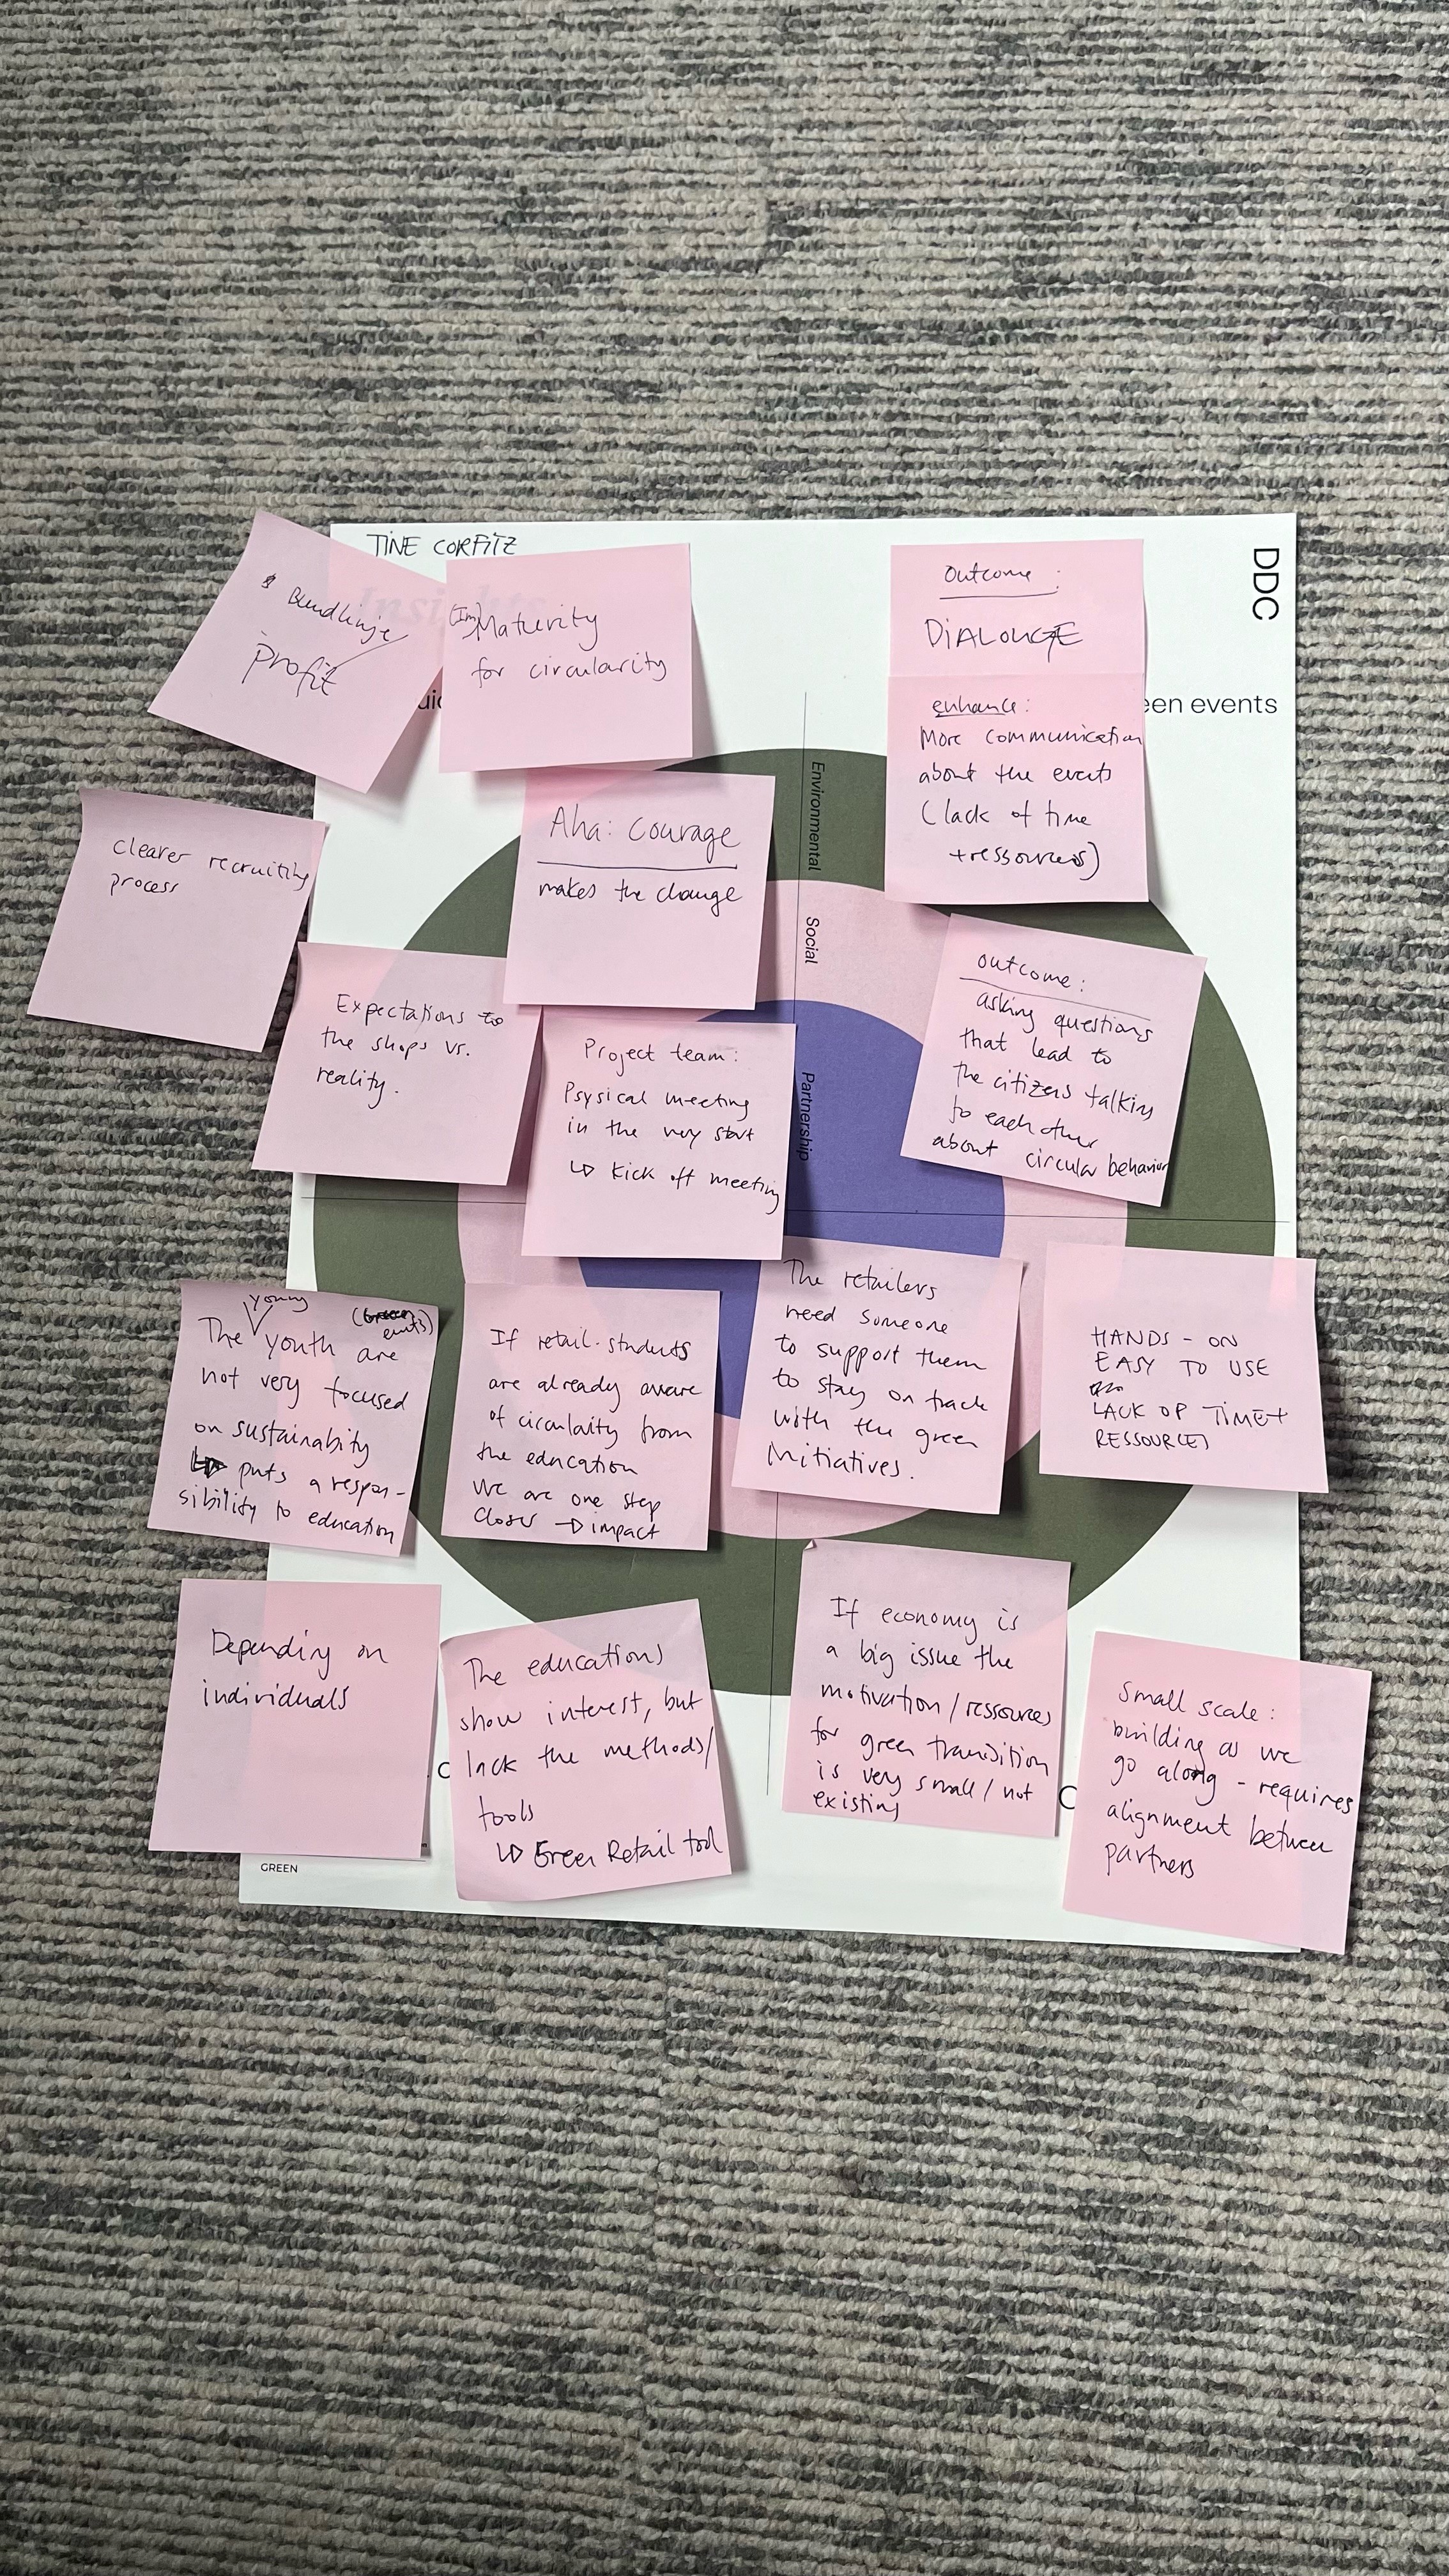 TINE CORFITZ
Insights
DDC
een events
$ Bundlinje
profit
(Im)Maturity
for circularity
Outcome:
DIALOUGE
enhance:
More communication
about the events
(lack of time
+ressources)
clearer recruiting
process
Aha: Courage
makes the change
Expectations to
the shops vs.
reality.
Project team:
Psysical meeting
in the very start
↳ Kick off meeting
Environmental
Social
Partnership
outcome:
asking questions
that lead to
the citizens talking
to each other
about circular behavior
young
The youth are
not very focused
on sustainability
↳ puts a respon-
sibility to education
If retail-students
are already aware
of circularity from
the education
we are one step
closer → impact
The retailers
need someone
to support them
to stay on track
with the green
initiatives.
HANDS-ON
EASY TO USE
LACK OF TIME+
RESSOURCES
Depending on
individuals
The educations
show interest, but
lack the methods/
tools
↳ Green Retail tool
If economy is
a big issue the
motivation/ressources
for green transition
is very small/not
existing
Small scale:
building as we
go along - requires
alignment between
partners
GREEN